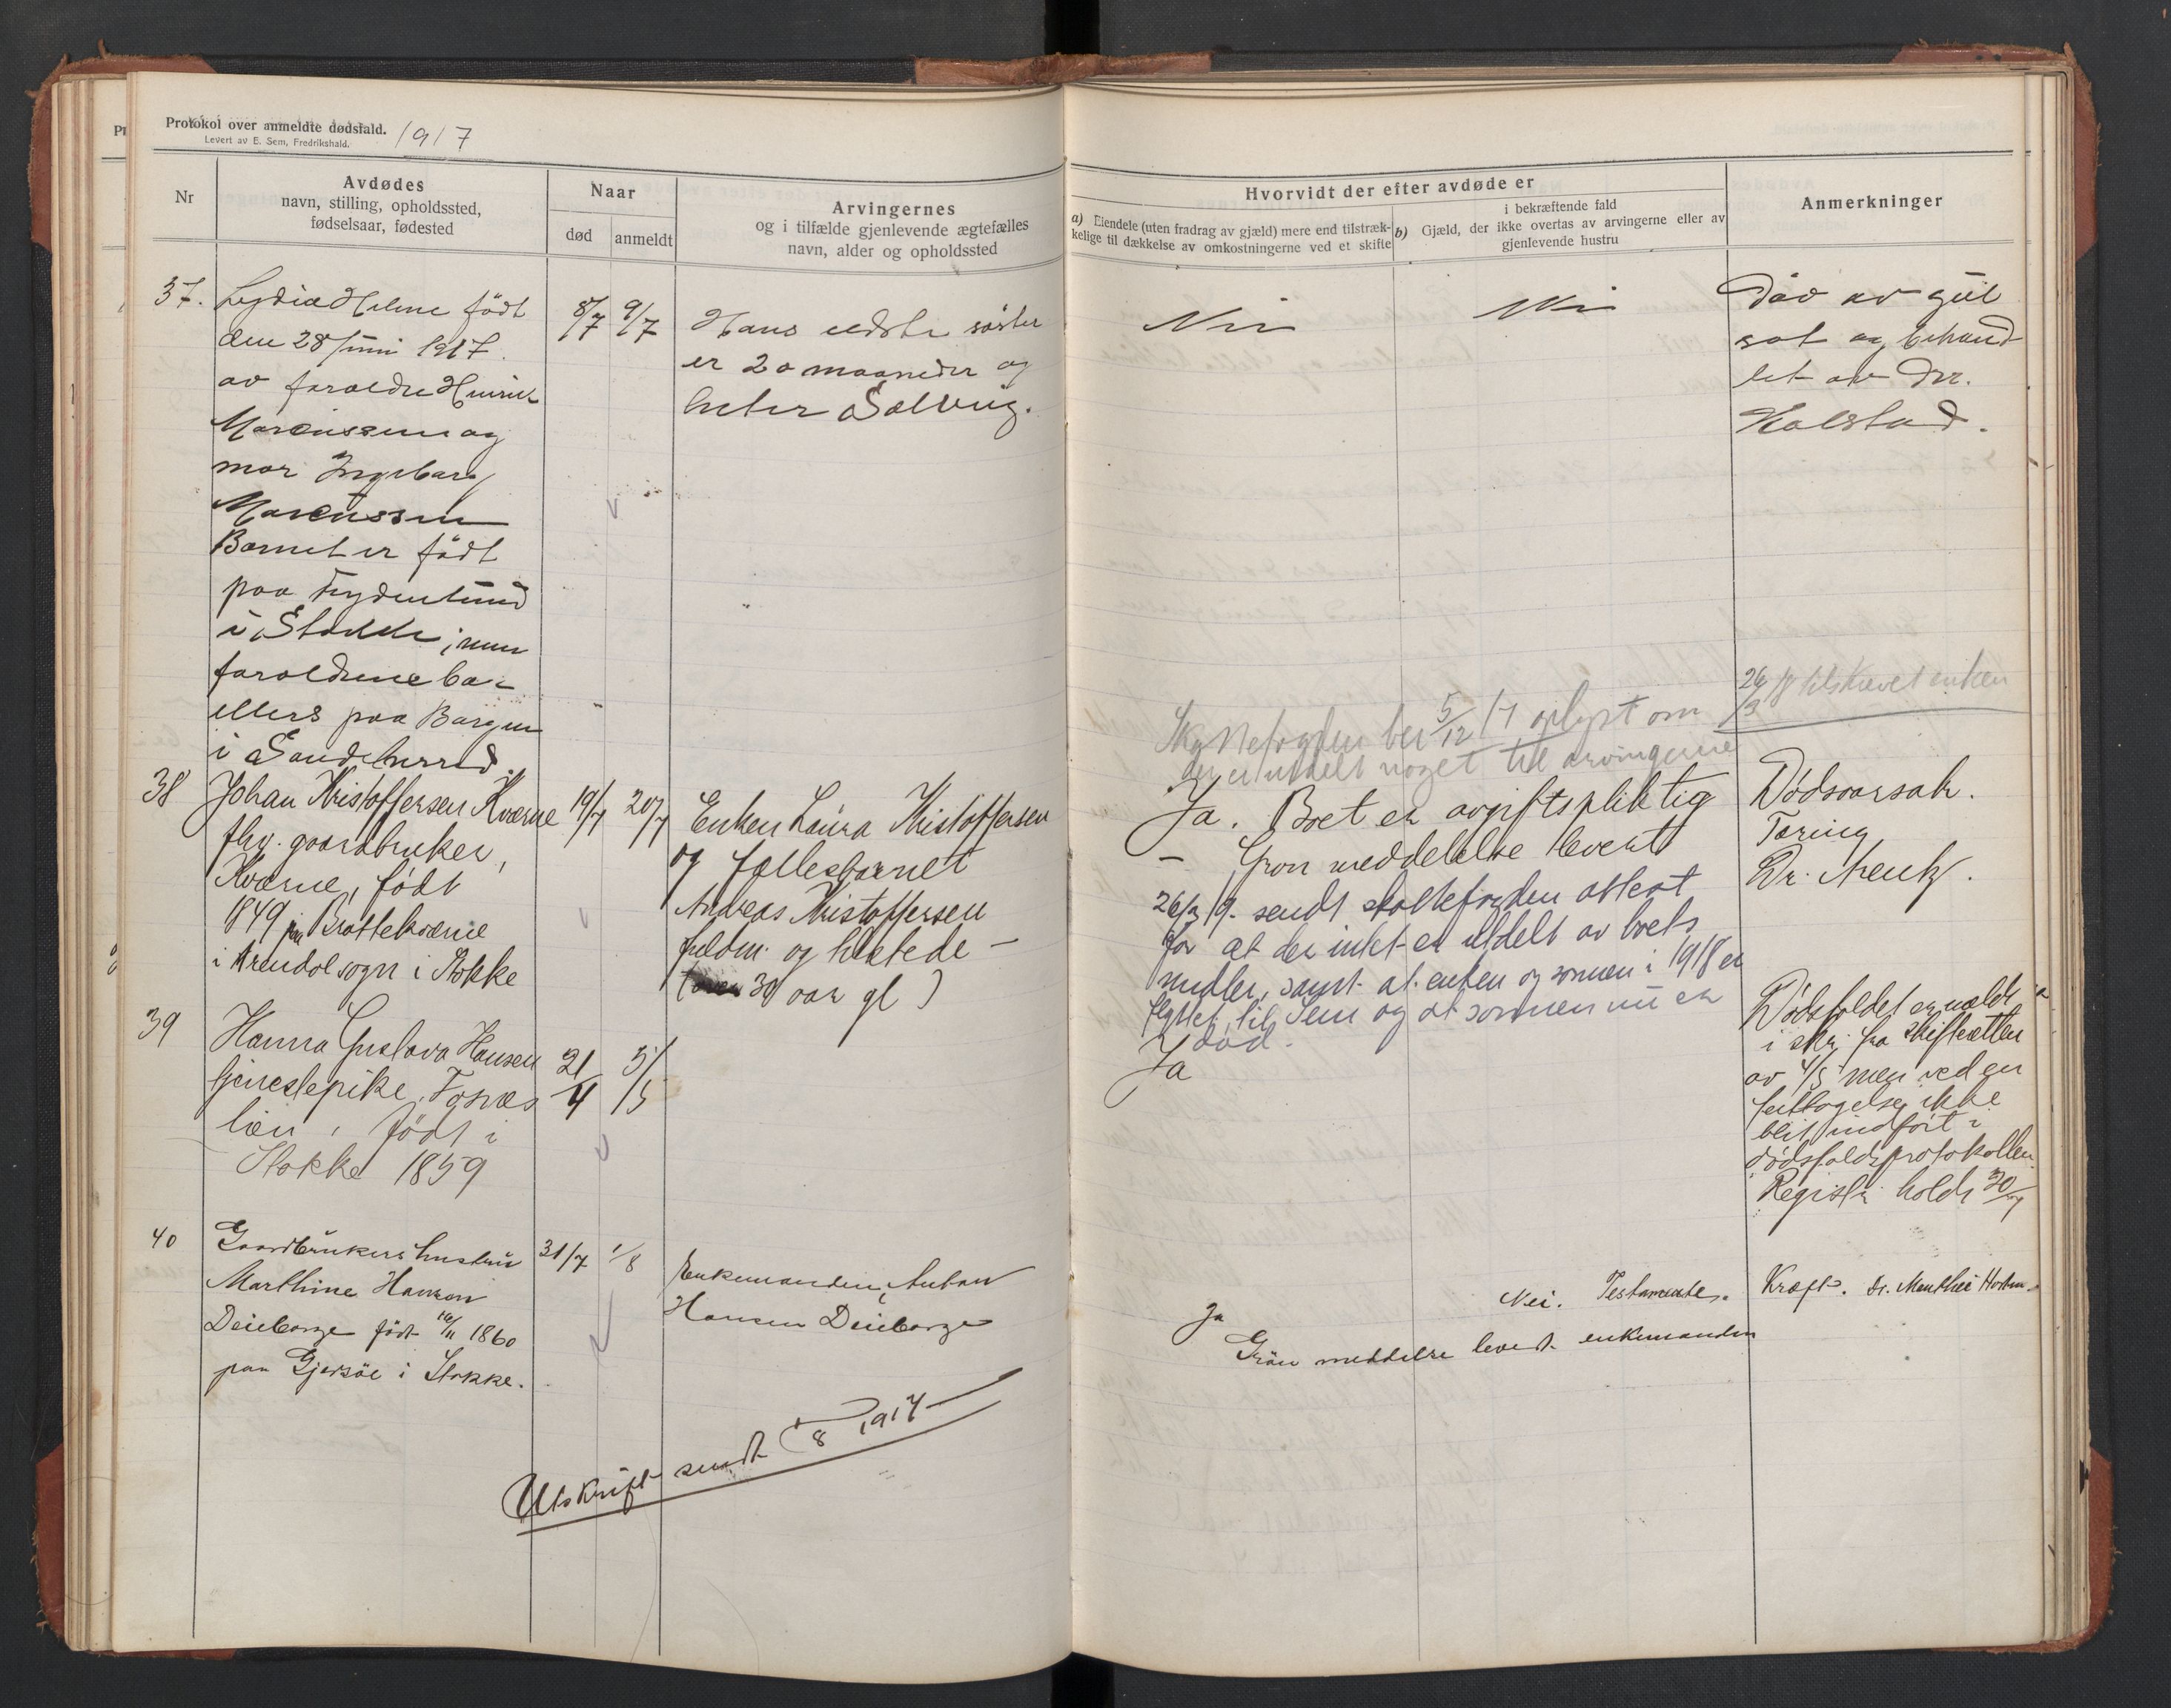 Protokol over anmeldte dødsfald. 1917
Levert av E. Sem, Fredrikshald.
Nr
Avdødes
navn, stilling, opholdssted,
fødselsaar, fødested
Naar
død
anmeldt
Arvingernes
og i tilfælde gjenlevende ægtefælles
navn, alder og opholdssted
Hvorvidt der efter avdøde er
a) Eiendele (uten fradrag av gjæld) mere end tilstræk-
kelige til dækkelse av omkostningerne ved et skifte
i bekræftende fald
b) Gjæld, der ikke overtas av arvingerne eller av
gjenlevende hustru
Anmerkninger
37.
Lydia Helene födt
den 28 juni 1917.
av foraldre Hinrik
Marcussen og
mor Ingebarg
Marcussen
Barnet er födt
paa Frydenlund
i Stokke, men
foraldrene bo-
ellers paa Bargen
i Sandeherred.
8/7
9/7
Hans eldste söster
er 20 maaneder og
heter Solveig.
Nei
Nei
Död av gul
sot og behand
let av Dr.
Holstad.
38
Johan Kristoffersen Kværne
fhv. gaardbruker,
Kværne, født
1849 paa Brattekværne
i Arendal sogn i Stokke
19/7
20/7
Enken Laura Kristoffersen
og fællesbarnet
Andreas Kristoffersen
fuldm. og helbrede -
( over 30 aar gl )
Skattefogden ber 5/12 17 oplyst om
der er utdelt noget til arvingerne
26/3 18 tilskrevet enken
Ja. Boet er avgiftspliktig
- Grøn meddelelse levert
26/3 19. sendt skattefogden attest
for at der intet er utdelt av boets
midler, samt at enken og sønnen i 1918 er
flyttet til Sem og at sønnen nu er
død.
Dødsaarsak.
Tæring
Dr. Arentz.
39
Hanna Gustava Hansen
tjenestepike, Fosnæs
lien, født i
Stokke 1859
21/4
5/5
Ja
Dødsfaldet er meldt
i skr. fra skifteretten
av 4/5 men ved en
feiltagelse ikke
blit indført i
dødsfaldsprotokollen.
Registr. holdt 30/7
40
Gaardbrukers hustru
Marthine Hansen
Deieborge født 10/11 1860
paa Gjersöe i Stokke.
31/7
1/8
Enkemanden, Anton
Hansen Deieborge
Ja
Nei. Testamente.
Grön meddelse levert enkemanden
Kræft. Dr. Menthei Horten.
Utskrift sendt 1/8 1917